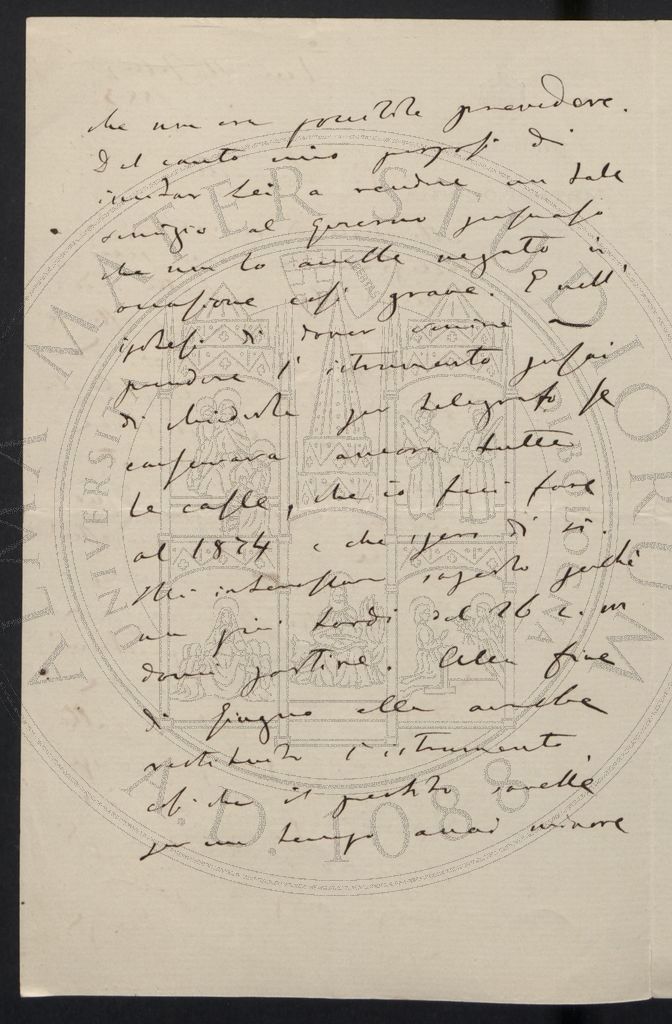 che non era possibile prevedere.
Dal canto mio proposi di
invitar Lei a rendere un tale
servigio al Governo persuaso
che non lo avrebbe negato in
occasione così grave. E nell'
ipotesi di dover venire a
prendere l'istrumento pensai
di chiederle per telegrafo se
conservava ancora tutte
le casse, che io feci fare
al 1874 e che spero di sì.
Mi interessa saperlo perché
non più tardi del 26 c. m
dovrei partire. Alla fine
di Giugno ella avrebbe
restituito l'istrumento
così che il prestito sarebbe
per un tempo assai minore
ALMA MATER STUDIORUM
UNIVERSITÀ DI BOLOGNA
A.D. 1088